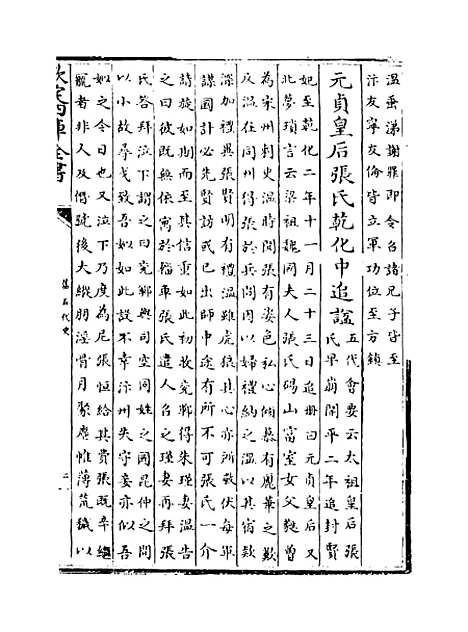 溫垂涕謝罪即令召諸兄子皆至
汴友寧友倫皆立軍功位至方鎮
元貞皇后張氏乾化中追諡五代會要云太祖皇后張
氏早崩開平二年追封賢
妃至乾化二年十一月二十三日追冊曰元貞皇后又
北夢瑣言云梁祖魏國夫人張氏碭山富室女父蕤曾
為宋州刺史溫時聞張有姿色私心傾慕有麗華之歎
及溫在同州得張於兵間因以婦禮納之溫以其宿欵
深加禮異張賢明有禮溫雖虎狼其心亦所敬伏每軍
謀國計必先賢訪或已出師中途有所不可張氏一介
請旋如期而至其信重如此初收兗鄆得朱瑾妻溫告
之曰彼既無依寓於輜車張氏遣人召之瑾妻再拜張
氏答拜泣下謂之曰兗鄆與司空同姓之國昆仲之間
以小故尋戈致吾姒如此設不幸汴州失守妾亦似吾
姒之今日也又泣下乃度為尼張恒給其費張既卒繼
寵者非人及僭號後大縱朋淫骨肉聚麀帷薄荒穢以
欽定四庫全書
舊五代史